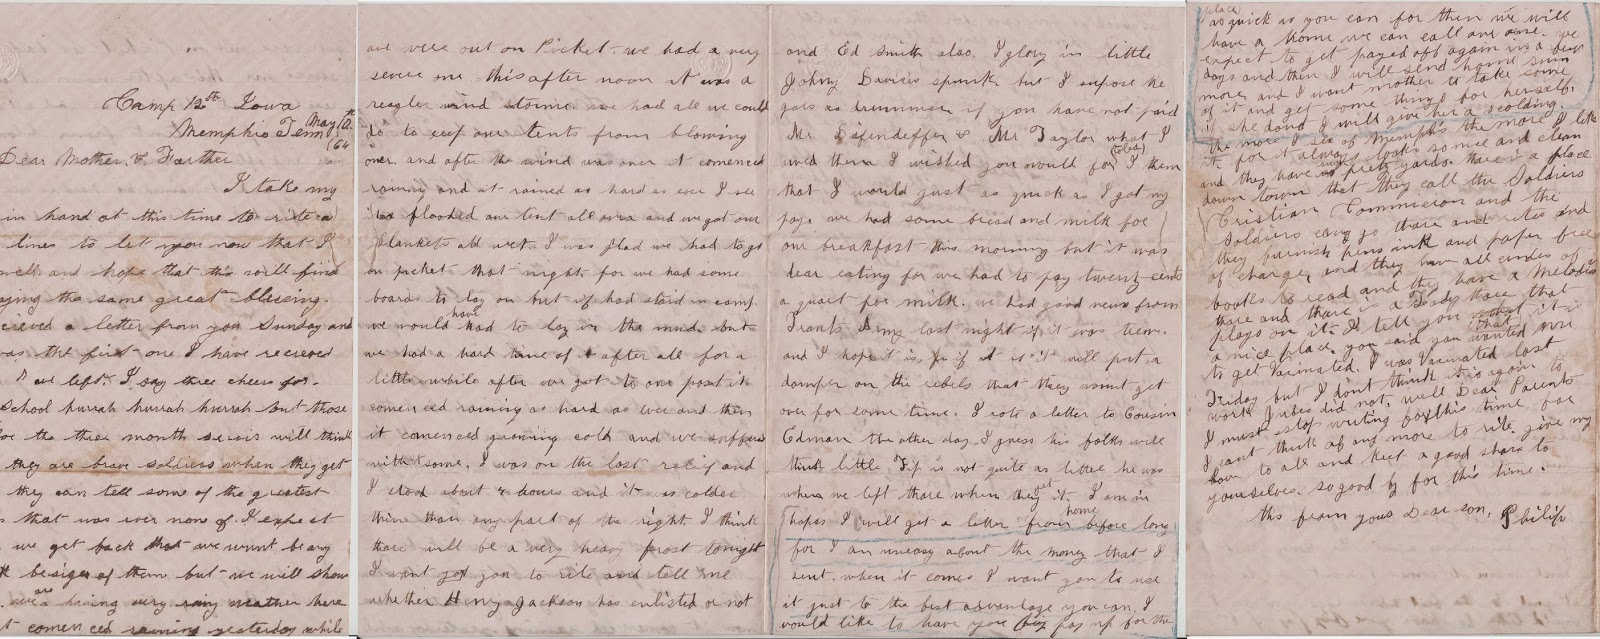 Camp 12th Iowa
Memphis Tenn May 10th
/64
Dear Mother, & Farther
I take my
in hand at this time to rite a
lines to let you now that I
well and hope that this will find
aying the same great blissing.
cieved a letter from you Sunday and
was the first one I have recieved
we left. I say three cheers for
School hurrah hurrah hurrah but those
for the three month servis will think
they are brave soldiers when they get
they can tell some of the greatest
that was ever now of. I expect
we get back that we wunt be any
besides of them but we will show
we are having very rainy weather here
comenced raining yesterday while
we were out on Picket we had a very
severe one this after noon it was a
regler wind storme. we had all we could
do to keep our tents from blowing
over and after the wind was over it comenced
raining and it rained as hard as ever I see
it flooded our tent all over and we got our
blankets all wet. I was glad we had to go
on picket that night for we had some
boards to lay on but if had staid in camp
we would have had to lay in the mud. but
we had a hard time of it after all for a
little while after we got to our post it
comenced raining as hard as ever and then
it comenced growing cold and we suffered
with some. I was on the last relief and
I stood about 4 hours and it was colder
thine than any part of the night. I think
thare will be a very heavy frost tonight
I want you to rite and tell me
whether Henry Jackson has enlisted or not
and Ed Smith also. I glory in little
Johny Davises spunk. but I supose he
goes as drummer if you have not paid
Mr Difendeffer & Mr Taylor what I
owed them I wished you would for I them
that I would just as quick as I got my
pay. we had some bread and milk for
our breakfast this morning but it was
dear eating for we had to pay twenty cents
a quart for milk. we had good news from
Grants Army last night if it was trew.
and I hope it is, for if it is it will put a
damper on the rebels that they wount get
over for some time. I rote a letter to Cousin
Edman the other day. I guess his folks will
think little Fip is not quite as little he was
when we left thare when they get it. I am in
hopes I will get a letter from home before long
for I an uneasy about the money that I
sent. when it comes I want you to use
it just to the best advantage you can. I
would like to have you pay up for the
place
as quick as you can for then we will
have a home we can call our one. we
expect to get payed off again in a few
days and then I will send home sum
more, and I want mother to take some
of it and get some thing for herself.
if she dond I will give her a scolding.
the more I see of Memphis the more I like
it for it always looks so nice and clean
and they have such pretty yards. there is a place
down town that they call the Soldiers
Cristian Commiscion and the
Soldiers can go thare and rites and
they furnish pens ink and paper free
of charge, and they have all kindes of
books to read and they have a Melodian
thare and thare is a Lady thare that
plays on it. I tell you what it is
a nice place. you said that you wanted me
to get Vacinated. I was Vacinated last
Friday but I dont think it is agoin to
work Jules did not. well Dear Parents
I must stop writing for this time for
I cant think of any more to rite. give my
love to all and keep a good share to
yourselves. so good by for this time.
this from your Dear son, Philip